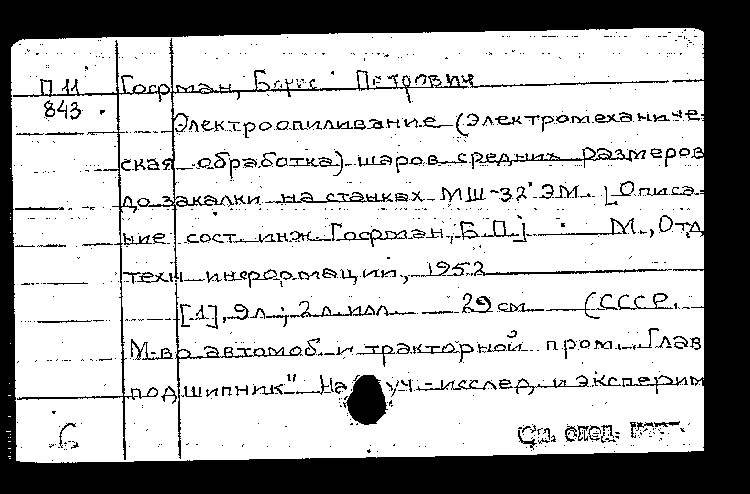 П 11 Гофман, Борис Петрович
843
Электроопиливание (Электромеханиче-
ская обработка) шаров средних размеров
до закалки на станках МШ-32 ЭМ. [Описа-
ние сост. инж. Гофман, Б.П.] М., Отд.
техн информации, 1952
[1], 9 л.; 2 л. илл. 29 см (СССР.
М-во автомоб. и тракторной пром. "Глав
подшипник" Науч.-исслед. и эксперим
б См. след.